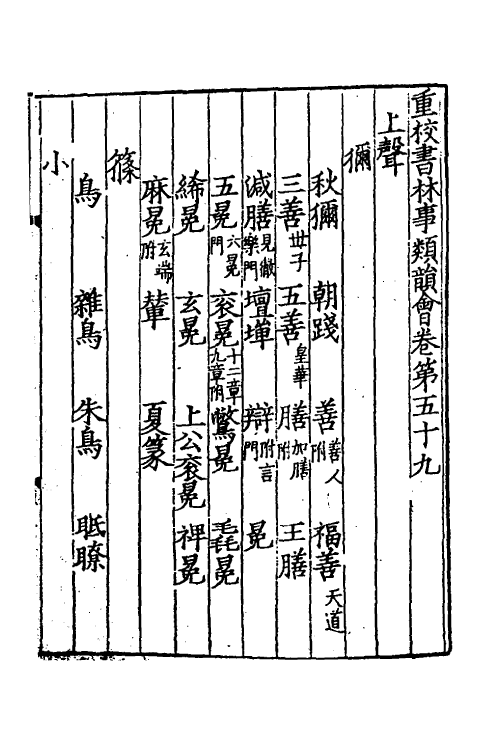 重校書林事類韻會卷第五十九
上聲
獮
秋獮 朝踐 善善人附 福善天道
三善丗子 五善皇華 膳加膳附 王膳
減膳見徹樂門 壇墠 辯附言門 冕
五冕六冕門 衮冕十二章九章附 鷩冕 毳冕
絺冕 玄冕 上公衮冕 裨冕
麻冕玄端附 輦 夏篆
篠
鳥 雜鳥 朱鳥 眂瞭
小